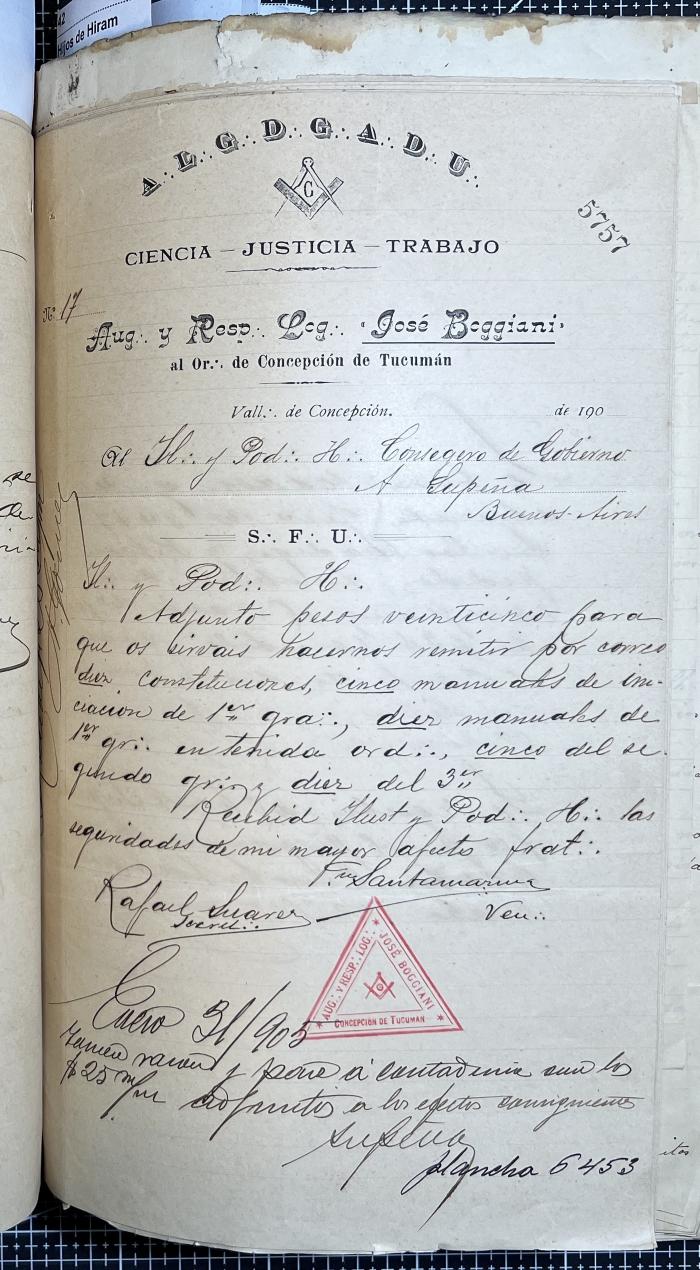 42
Hijos de Hiram
A∴ L∴ G∴ D∴ G∴ A∴ D∴ U∴
G
5757
CIENCIA — JUSTICIA — TRABAJO
Nº 17
Aug∴ y Resp∴ Log∴ «José Boggiani»
al Or∴ de Concepción de Tucumán
Vall∴ de Concepción. de 190
Al Il∴ y Pod∴ H∴ Consegero de Gobierno
A Supeña
Buenos-Aires
S∴ F∴ U∴
Il∴ y Pod∴ H∴
Adjunto pesos veinticinco para
que os sirvais hacernos remitir por correo
diez constituciones, cinco manuales de ini-
ciacion de 1er gra∴, diez manuales de
1er gr∴ en tenida ord∴, cinco del se-
gundo gr∴ y diez del 3er
Recibid Ilust y Pod∴ H∴ las
seguridades de mi mayor afecto frat∴
Santamarina
Rafael Suarez
Secret∴
Ven∴
AUG∴ Y RESP∴ LOG∴ JOSÉ BOGGIANI
CONCEPCIÓN DE TUCUMÁN
Enero 31/905
y pase á contaduria con los
$ 25 m/n adjuntos a los efectos consiguientes
Supeña
plancha 6453